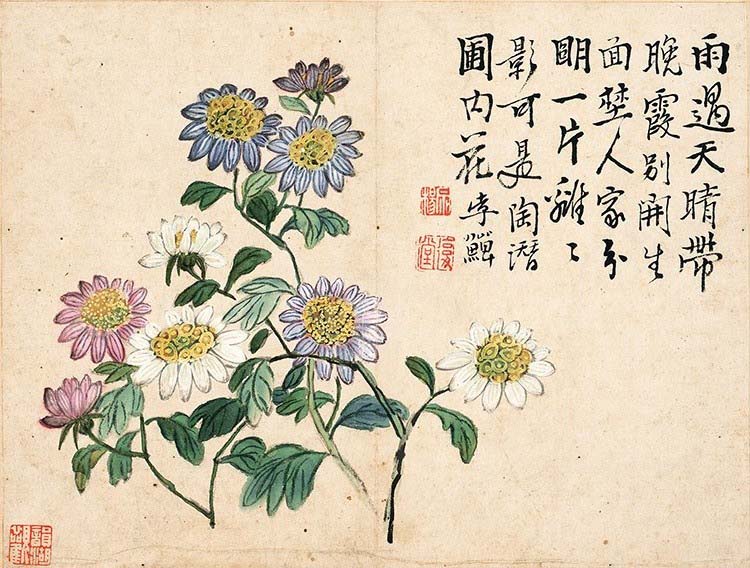 雨過天晴帶
晚霞别開生
面埜人家分
朙一片離〻
影可是陶潛
圃内花 李鱓